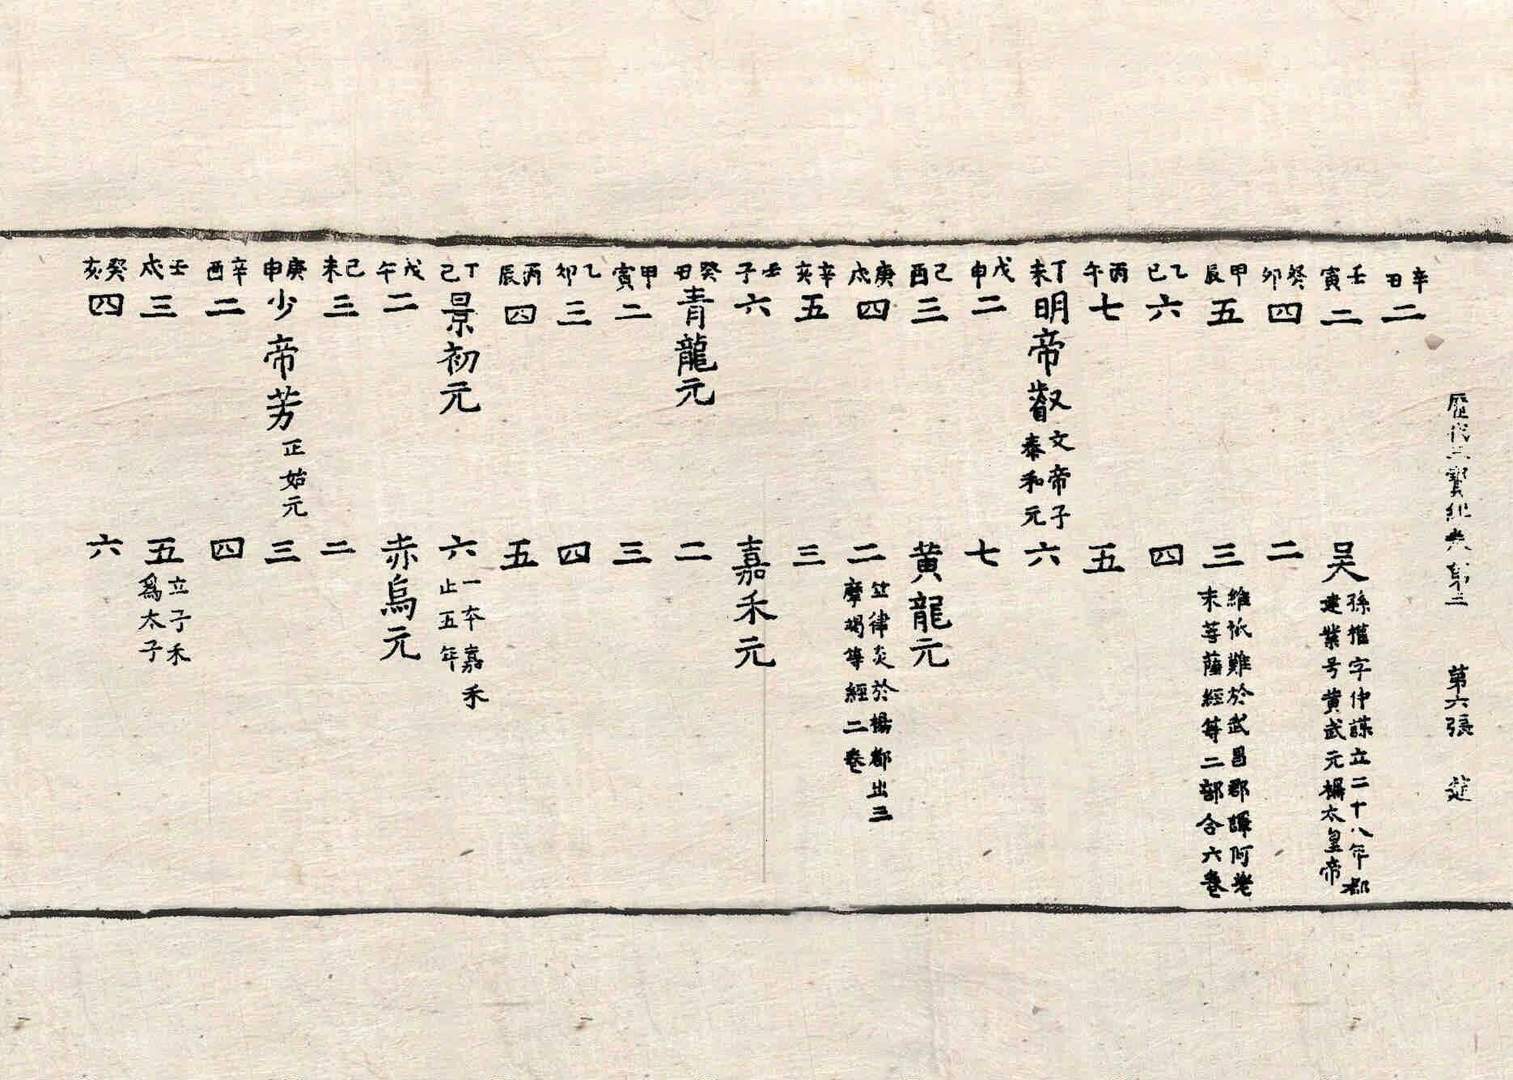 歷代三寳紀卷第三　第六張
辛丑 二
壬寅 二　吳 孫權字仲謀立二十八年都
建業号黄武元稱太皇帝
癸卯 四　二
甲辰 五　三 維祇難於武昌郡譯阿差
末菩薩經等二部合六卷
乙巳 六　四
丙午 七　五
丁未 明帝叡 文帝子
泰和元　六
戊申 二　七
己酉 三　黄龍元
庚戌 四　二 竺律炎於楊都出三
摩竭等經二卷
辛亥 五　三
壬子 六　嘉禾元
癸丑 青龍元　二
甲寅 二　三
乙卯 三　四
丙辰 四　五
丁巳 景初元　六 一本嘉禾
止五年
戊午 二　赤烏元
己未 三　二
庚申 少帝芳 正始元　三
辛酉 二　四
壬戌 三　五 立子禾
爲太子
癸亥 四　六